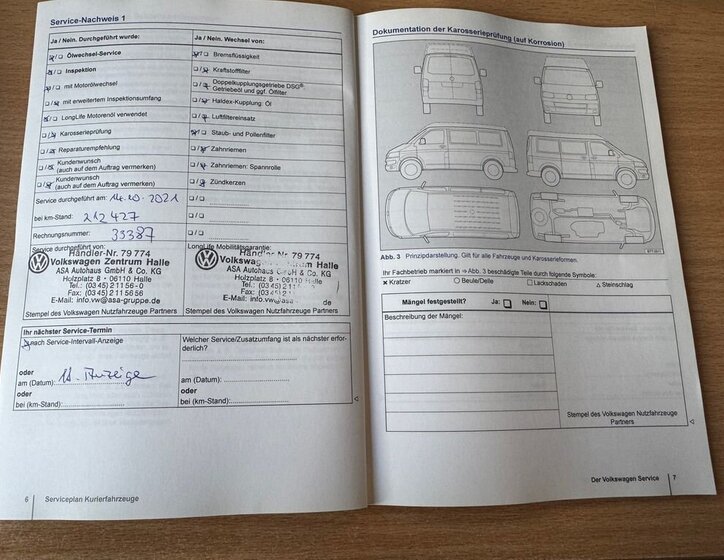 Service-Nachweis 1
Ja / Nein. Durchgeführt wurde:
Ja / Nein. Wechsel von:
Ölwechsel-Service
Bremsflüssigkeit
Inspektion
Kraftstofffilter
mit Motorölwechsel
Doppelkupplungsgetriebe DSG®:
Getriebeöl und ggf. Ölfilter
mit erweitertem Inspektionsumfang
Haldex-Kupplung: Öl
LongLife Motorenöl verwendet
Luftfiltereinsatz
Karosserieprüfung
Staub- und Pollenfilter
Reparaturempfehlung
Zahnriemen
Kundenwunsch
(auch auf dem Auftrag vermerken)
Zahnriemen: Spannrolle
Kundenwunsch
(auch auf dem Auftrag vermerken)
Zündkerzen
Service durchgeführt am: 14.10.2021
bei km-Stand: 212 427
Rechnungsnummer: 35387
Service durchgeführt von:
LongLife Mobilitätsgarantie:
Händler-Nr. 79 774
Volkswagen Zentrum Halle
ASA Autohaus GmbH & Co. KG
Holzplatz 8 · 06110 Halle
Tel.: (03 45) 211 56-0
Fax: (03 45) 211 56 56
E-Mail: info.vw@asa-gruppe.de
Stempel des Volkswagen Nutzfahrzeuge Partners
Händler-Nr. 79 774
Volkswagen Zentrum Halle
ASA Autohaus GmbH & Co. KG
Holzplatz 8 · 06110 Halle
Stempel des Volkswagen Nutzfahrzeuge Partners
Ihr nächster Service-Termin
nach Service-Intervall-Anzeige
Welcher Service/Zusatzumfang ist als nächster erfor-
derlich?
oder
am (Datum): lt. Anzeige
am (Datum):
oder
oder
bei (km-Stand):
bei (km-Stand):
6 Serviceplan Kurierfahrzeuge
Dokumentation der Karosserieprüfung (auf Korrosion)
Abb. 3 Prinzipdarstellung. Gilt für alle Fahrzeuge und Karosserieformen.
Ihr Fachbetrieb markiert in ⇒Abb. 3 beschädigte Teile durch folgende Symbole:
× Kratzer
○ Beule/Delle
□ Lackschaden
△ Steinschlag
Mängel festgestellt? Ja: Nein:
Beschreibung der Mängel:
Stempel des Volkswagen Nutzfahrzeuge
Partners
Der Volkswagen Service 7